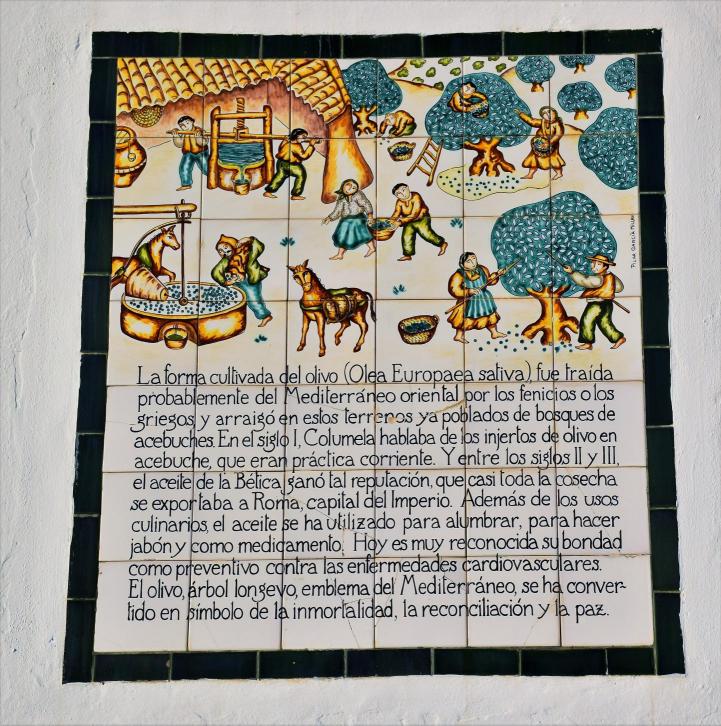 La forma cultivada del olivo (Olea Europaea sativa) fue traída
probablemente del Mediterráneo oriental por los fenicios o los
griegos y arraigó en estos terrenos ya poblados de bosques de
acebuches. En el siglo I, Columela hablaba de los injertos de olivo en
acebuche, que eran práctica corriente. Y entre los siglos II y III,
el aceite de la Bética ganó tal reputación, que casi toda la cosecha
se exportaba a Roma, capital del Imperio. Además de los usos
culinarios, el aceite se ha utilizado para alumbrar, para hacer
jabón y como medicamento. Hoy es muy reconocida su bondad
como preventivo contra las enfermedades cardiovasculares.
El olivo, árbol longevo, emblema del Mediterráneo, se ha conver-
tido en símbolo de la inmortalidad, la reconciliación y la paz.
PILAR GARCÍA